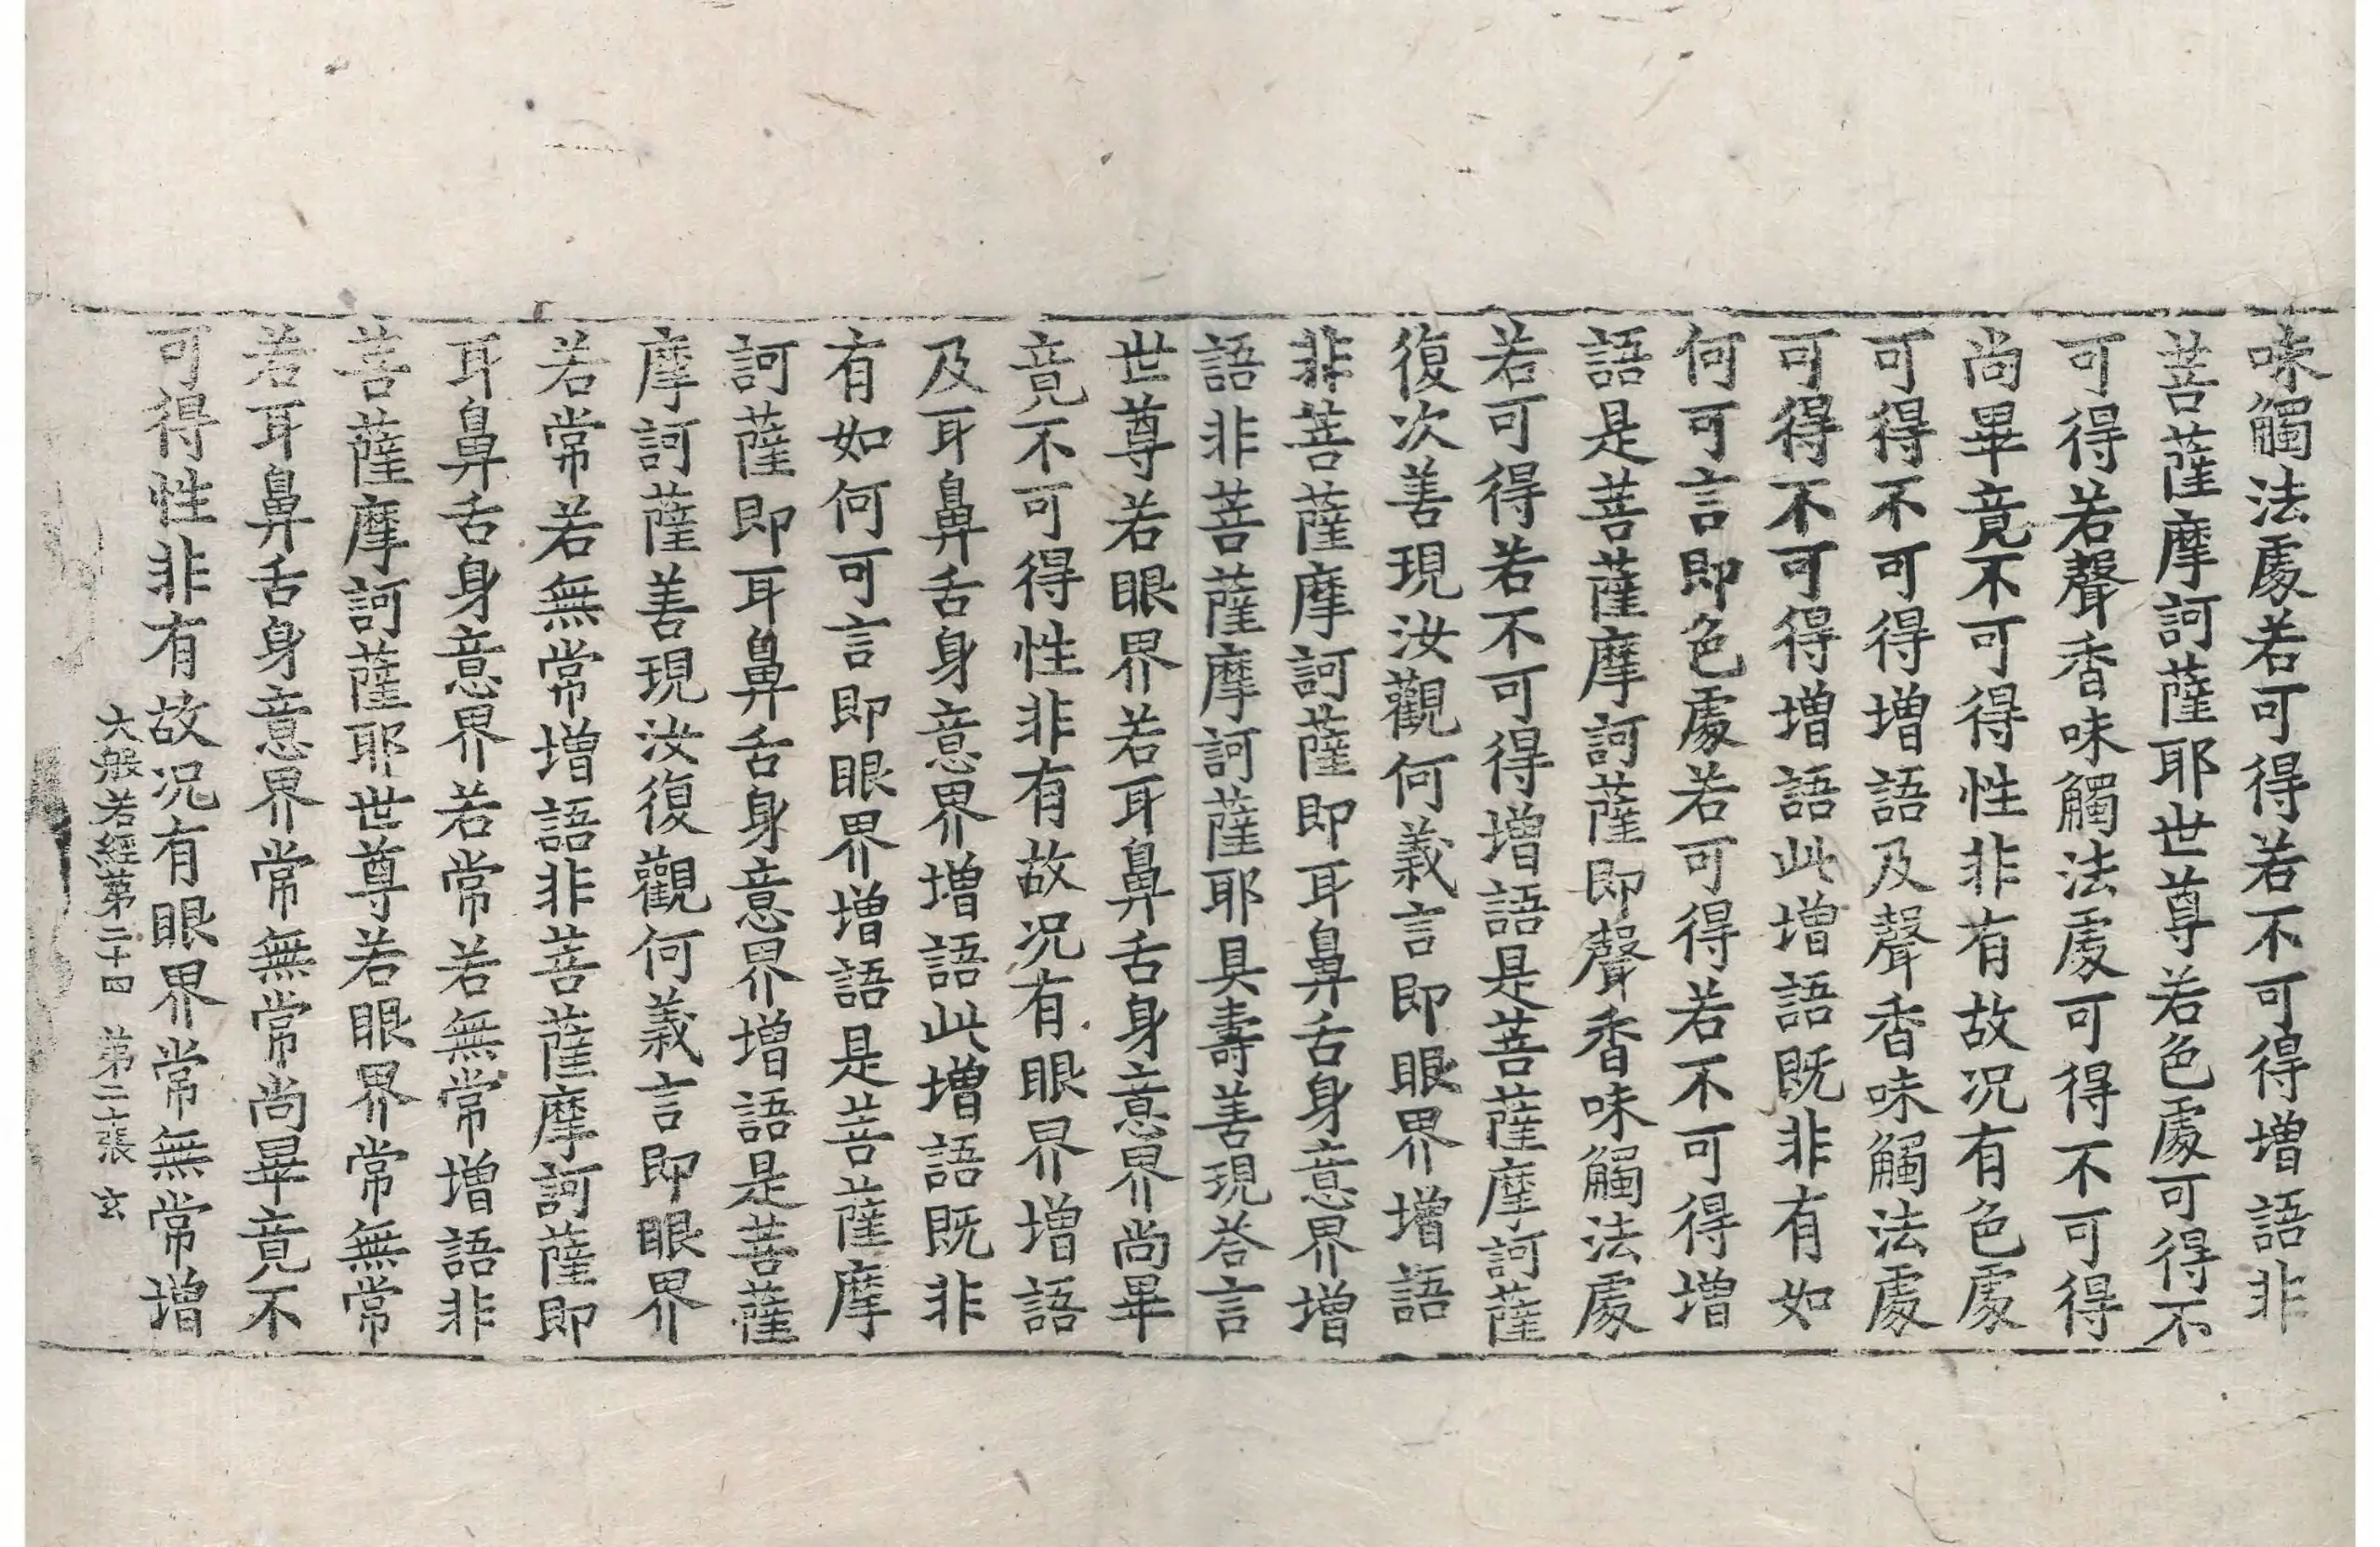 味觸法處若可得若不可得增語非
菩薩摩訶薩耶世尊若色處可得不
可得若聲香味觸法處可得不可得
尚畢竟不可得性非有故况有色處
可得不可得增語及聲香味觸法處
可得不可得增語此增語既非有如
何可言即色處若可得若不可得增
語是菩薩摩訶薩即聲香味觸法處
若可得若不可得增語是菩薩摩訶薩
復次善現汝觀何義言即眼界增語
非菩薩摩訶薩即耳鼻舌身意界增
語非菩薩摩訶薩耶具壽善現荅言
世尊若眼界若耳鼻舌身意界尚畢
竟不可得性非有故况有眼界增語
及耳鼻舌身意界增語此增語既非
有如何可言即眼界增語是菩薩摩
訶薩即耳鼻舌身意界增語是菩薩
摩訶薩善現汝復觀何義言即眼界
若常若無常增語非菩薩摩訶薩即
耳鼻舌身意界若常若無常增語非
菩薩摩訶薩耶世尊若眼界常無常
若耳鼻舌身意界常無常尚畢竟不
可得性非有故况有眼界常無常增
大般若經第二十四 第二張 玄